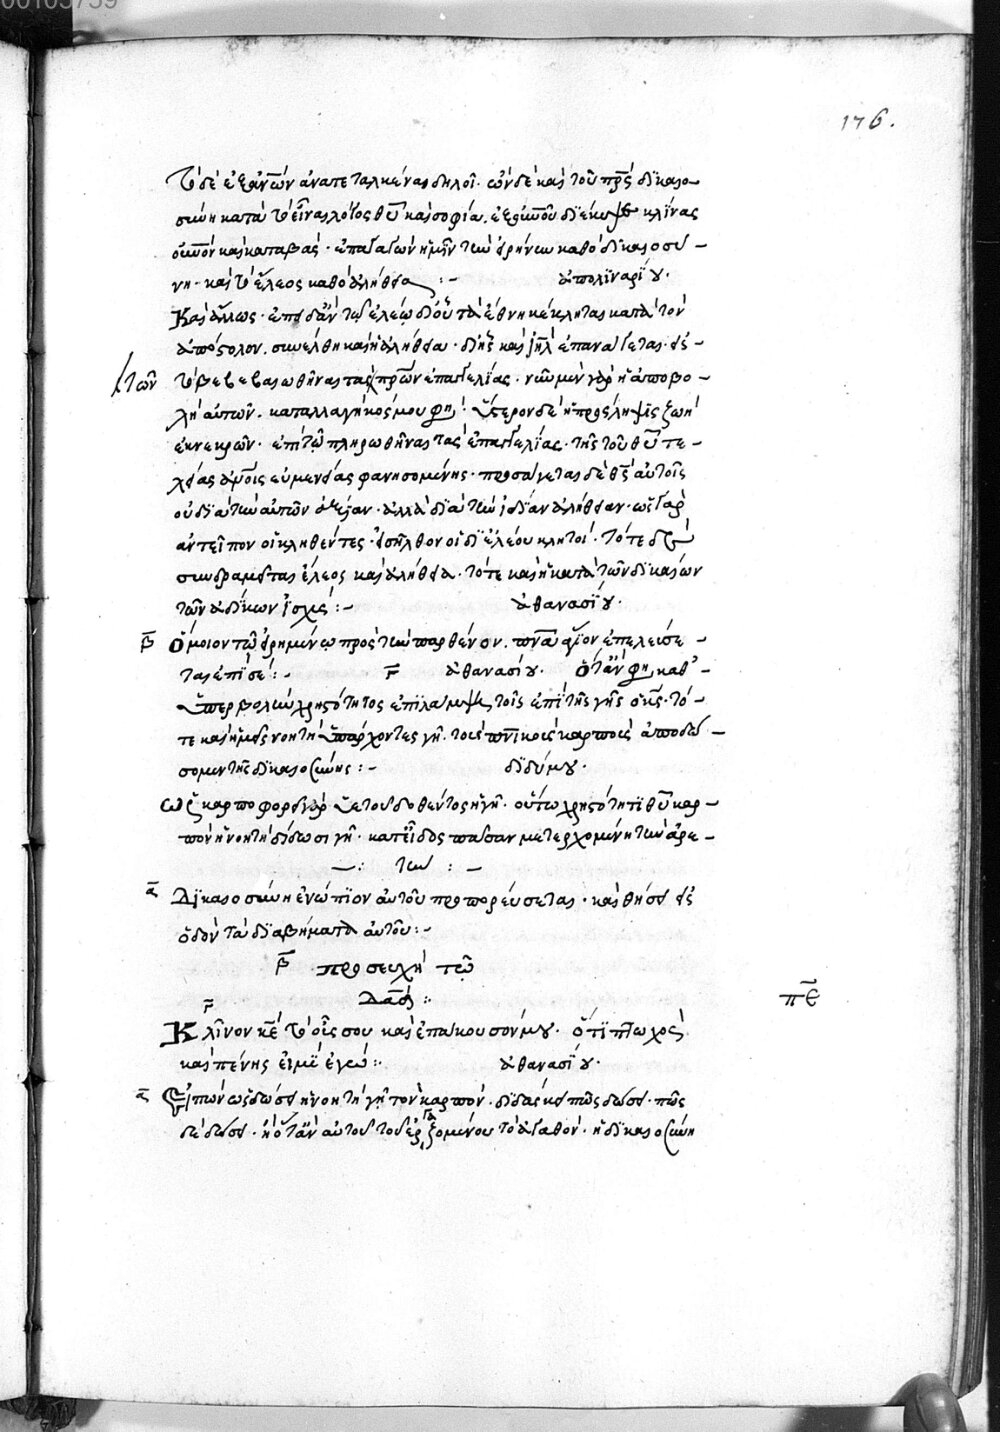 00105759
176.
τὸ δὲ ἐξ ἀνῶν ἀνατεταλκέναι δηλοῖ. ὧν δὲ καὶ τοῦ πρς δικαιο-
σύνη κατὰ τὸ εἶναι λόγος θῦ καὶ σοφία. ἐξ οὐνοῦ διέκυψε κλίνας
οὐνὸν καὶ καταβάς. ἐπαγαγὼν ἡμῖν τὴν εἰρήνην καθὸ δικαιοσύ-
νη. καὶ τὸ ἔλεος καθὸ ἀλήθεια :- ἀπολιναρίου.
Καὶ ἄλλως. ἐπειδὰν τῷ ἐλέῳ τὰ ἔθνη κέκληται κατὰ τὸν
ἀπόστολον. συνελθῃ καὶ ἡ ἀλήθεια. καὶ ιηλ ἐπανάγεται. εἰς
τὸ βεβαιωθῆναι τὰς πρων ἐπαγγελίας. νῦν μὲν γὰρ ἡ ἀποβο-
τῶν
λὴ αὐτῶν. καταλλαγὴ κόσμου φη. ὕστερον δὲ ἡ πρόσληψις ζωὴ
ἐκ νεκρῶν. ἐπὶ τῷ πληρωθῆναι τὰς ἐπαγγελίας. τῆς τοῦ θῦ τε-
λείας εὐμενείας φανησομένης. προσάγεται δὲ θς αὐτοῖς
οὐ διὰ τὴν αὐτῶν ἀξίαν. ἀλλὰ διὰ τὴν ἰδίαν ἀλήθειαν. ὡς γὰρ
ἀντεῖπον οἱ κληθέντες. εἰσῆλθον οἱ δι' ἐλέου κλητοί. τότε δὲ
συνδραμεῖται ἔλεος καὶ ἀλήθεια. τότε καὶ ἡ κατὰ τῶν δικαίων
τῶν ἀδίκων ἰσχὺς :- ἀθανασίου.
β ὅμοιον τῷ εἰρημένῳ πρὸς τὴν παρθένον. πνα ἅγιον ἐπελεύσε-
ται ἐπὶ σέ :- γ ἀθανασίου. ὅταν φη καθ' -
ὑπερβολὴν χρηστότητος ἐπιλάμψῃ τοῖς ἐπὶ τῆς γῆς ὁ κς. τό-
τε καὶ ἡμεῖς νοητὴ ὑπάρχοντες γῆ. τοὺς πνικοὺς καρποὺς ἀποδώ-
σομεν τῆς δικαιοσύνης :- διδύμου.
ὡς καρποφορεῖ γὰρ ὑετοῦ δοθέντος ἡ γῆ. οὕτω χρηστότητι θῦ καρ-
πὸν ἡ νοητὴ δίδωσι γῆ. κατ' εἶδος πᾶσαν μετερχομένη τὴν ἀρε-
-: τήν :-
α Δικαιοσύνη ἐνώπιον αὐτοῦ προπορεύσεται. καὶ θήσει εἰς
ὁδὸν τὰ διαβήματα αὐτοῦ :-
β προσευχὴ τῷ
Δαδ :-
πε
γ
Κλῖνον κε τὸ οὖς σου καὶ ἐπάκουσόν μου. ὅτι πτωχὸς
καὶ πένης εἰμὶ ἐγώ :- ἀθανασίου.
α Εἰπὼν ὡς δώσει ἡ νοητὴ γῆ τὸν καρπόν. διδάσκει πῶς δώσει. πῶς
δὲ δώσει. ἢ ὅταν αὐτοῦ τοῦ ἐργαξομένου τὸ ἀγαθόν. ἡ δικαιοσύνη